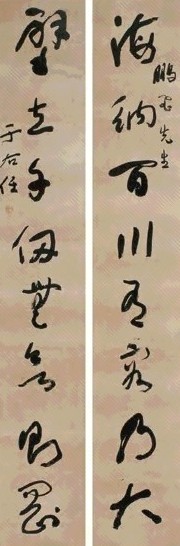 海納百川有容乃大
鵬飛先生
壁立千仞無欲則剛
于右任